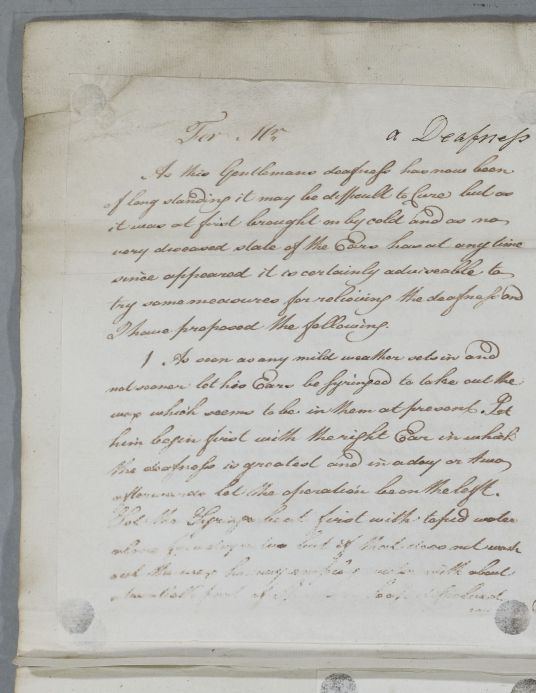 For Mr
a Deafness
As this Gentlemans deafness has now been
of long standing it may be difficult to Cure but as
it was at first brought on by cold and as no
very diseased state of the Ears has at any time
since appeared it is certainly adviseable to
try some measures for relieving the deafness and
I have proposed the following.
1 As soon as any mild weather sets in and
not sooner let his Ears be Syringed to take out the
wax which seems to be in them at present. Let
him begin first with the right Ear in which
the deafness is greatest and in a day or two
afterwards let the operation be on the left.
Let the Syringe be at first with tepid water
alone but if that does not wash
out the wax with about
part of